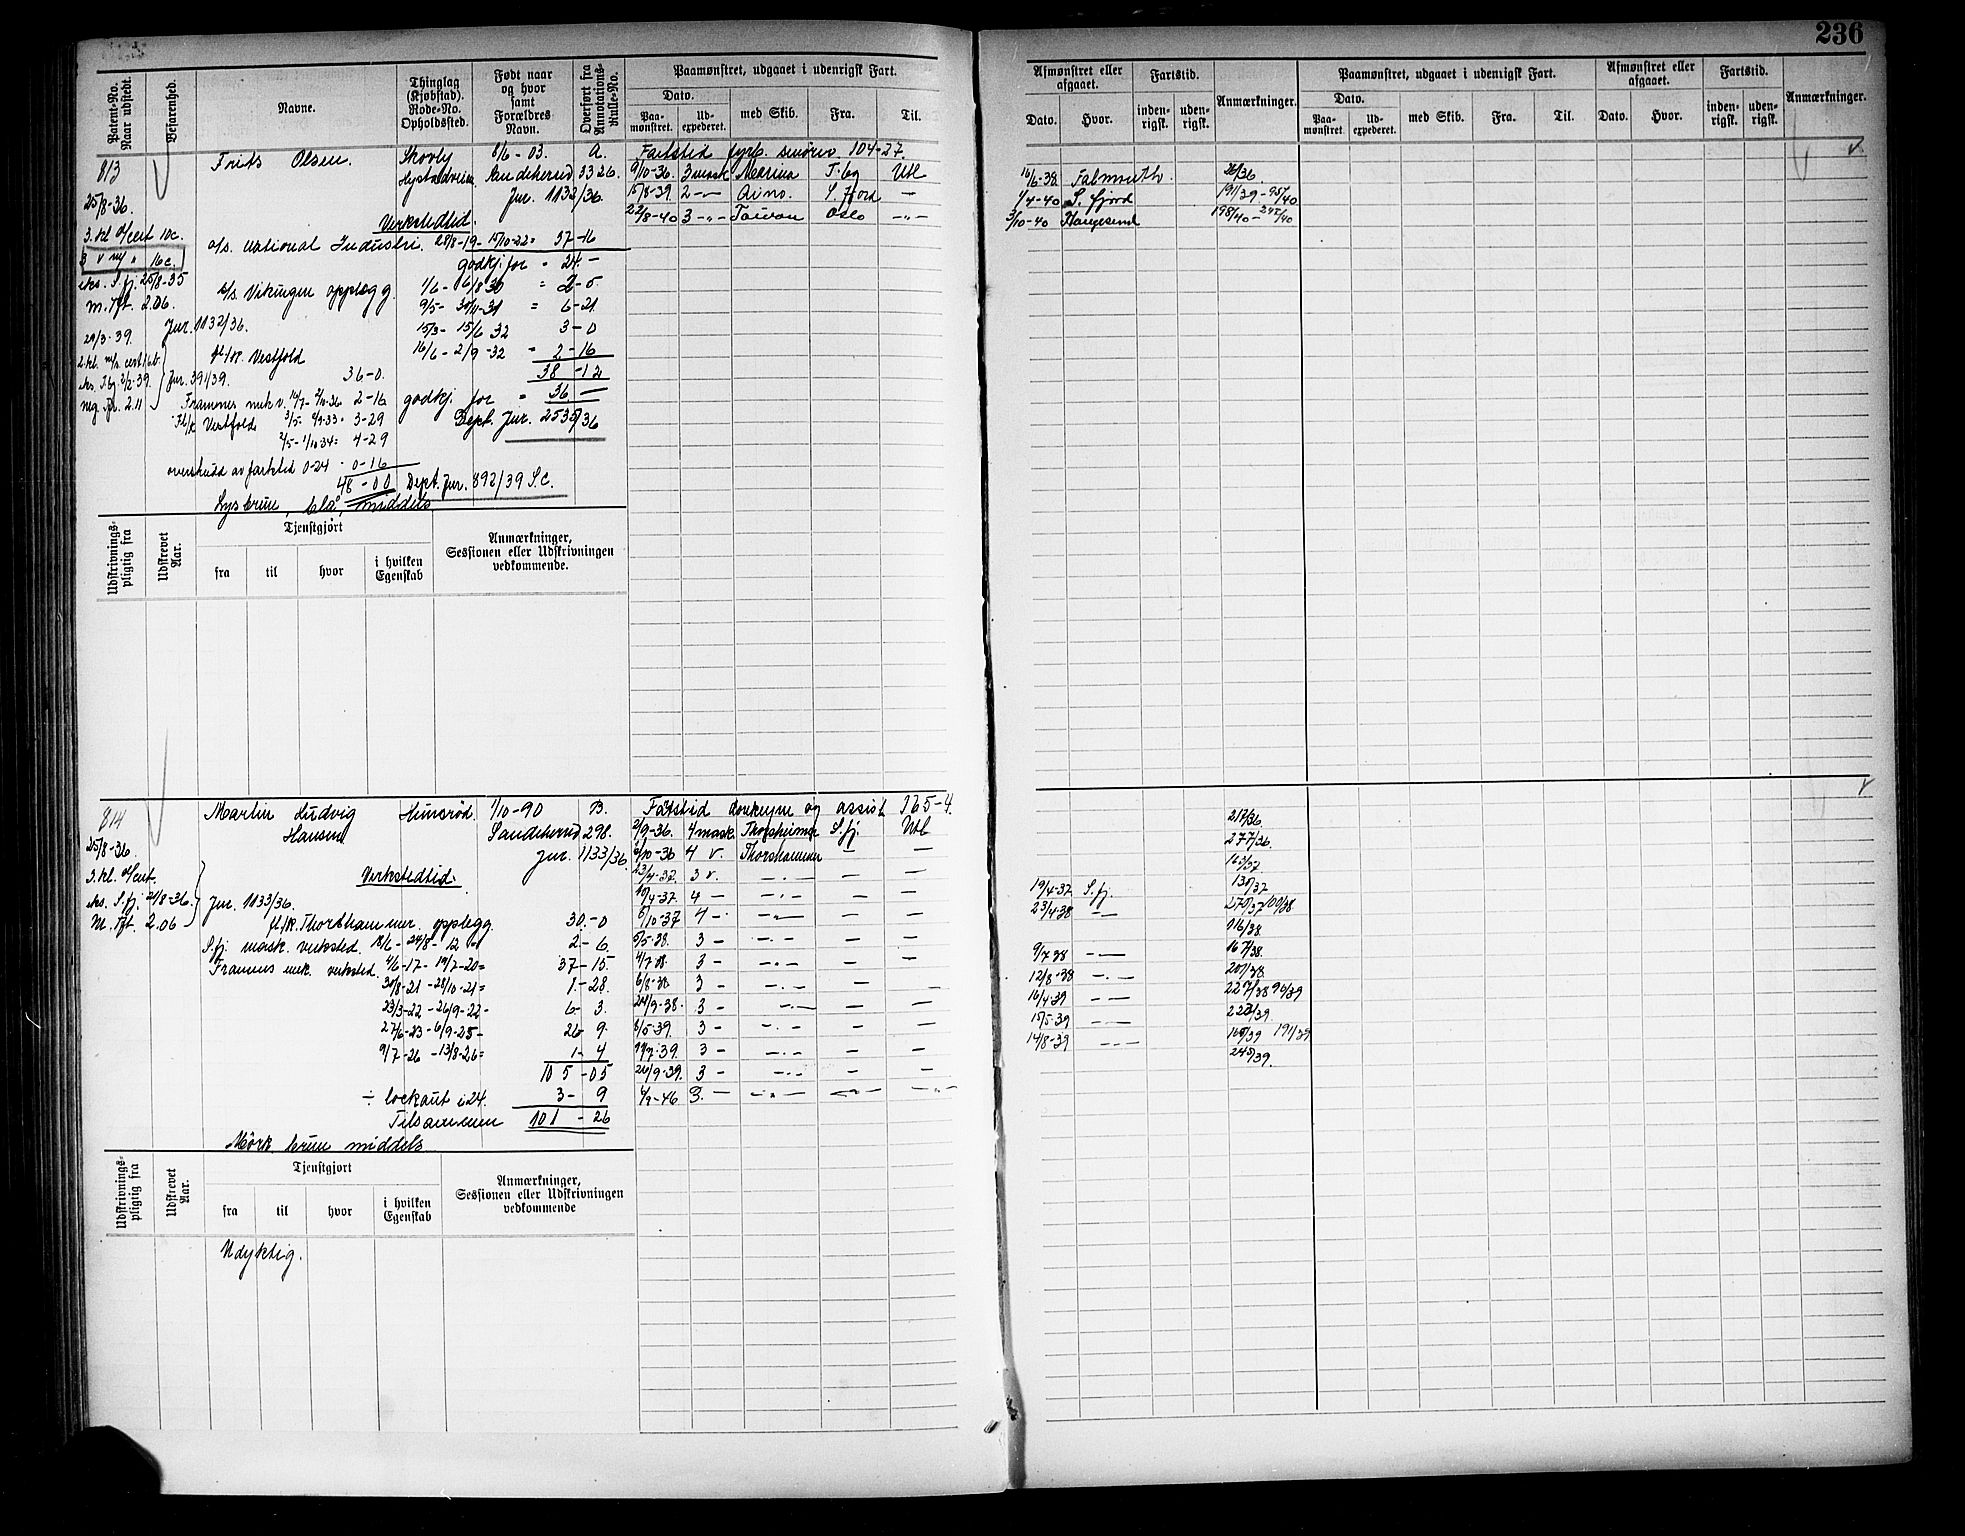 236
Patent-No. Naar udstedt.
Befarenhed.
Navne.
Thinglag (Kjøbstad). Rode-No. Opholdssted.
Født naar og hvor samt Forældres Navn.
Overført fra Annotations-Rulle-No.
Paamønstret, udgaaet i udenrigst Fart.
Dato.
Paa-mønstret.
Ud-expederet.
med Skib.
Fra.
Til.
Afmønstret eller afgaaet.
Dato.
Hvor.
Fartstid.
inden-rigst.
uden-rigst.
Anmærkninger.
Paamønstret, udgaaet i udenrigst Fart.
Dato.
Paa-mønstret.
Ud-expederet.
med Skib.
Fra.
Til.
Afmønstret eller afgaaet.
Dato.
Hvor.
Fartstid.
inden-rigst.
uden-rigst.
Anmærkninger.
813
Frits Olsen.
8/6-03. A.
Sandeherred 3326.
Jur. 1132/36.
25/8-36.
Verkstedtid.
a/s. national Industri 28/8-19-15/10-22= 37-16
godkj. for = 24.-
eks. S.fj. 25/8-35
m. Kft. 2.06.
a/s. Vikingen opplegg. 1/6- 6/8 30 = 2-5
= 6-21
Jur. 1132/36.
15/3- 15/6 32 3-0
29/3-39.
fl/k. Vestfold 16/6-2/9-32 = 2-16
38-12
Jur. 391/39.
36-0.
Framnes mek v. 2-16 godkj. for = 36.-
Fl/k Vestfold 3-29 Dept. Jur. 2535/36
2/5-1/10 34= 4-29
overskudd av fartstid 0-24 . 0-16
48-00 Dept. Jur. 892/39 S.C.
Lysbrun, blå, middels
Fartstid fyrb. smörer 104-27.
9/10-36. 3 mask Marina T.bg Utl
15/8-39. 2 -"- S. fjord -
22/8-40 3 -"- Taiwan Oslo -"-
16/6-38 Falmouth. 26/36.
1/4-40 S. fjord 191/39-95/40
3/10-40 Haugesund 198/40-242/40
Udskrivnings-pligtig fra
Udskrevet Aar.
Tjenstgjørt
fra
til
hvor
i hvilken Egenskab
Anmærkninger, Sessionen eller Udskrivningen vedkommende.
814
Martin Ludvig Hansen
Hunsrød.
1/10-90 B.
Sandeherred 298.
Jur. 1133/36.
25/8-36
3.kl. m/cert.
eks. S.fj. 21/8-36.
M. Kft. 2.06
Verkstedtid.
Jur. 1133/36.
fl/k. Thorshammer. opplegg. 30.-0
S.fj. mask. verksted. 18/6-24/8-12 = 2-6.
Framnes mek. verksted. 4/6-17-19/7-20= 37-15.
30/8-21-28/10-21= 1.-28.
23/3-22-26/9-22- 6-3.
27/6-23-6/9-25- 26-9.
9/7-26-13/8-26= 1-4
105-05
÷ lockaut i 24. 3-9
Tilsammen 101-26
Mörk brun middels
Fartstid donkeym og assist 165-4.
2/9-36. 4 mask. Thorshammer S.fj. Utl
6/10-36 4 v. Thorshammer - -
23/4-37. 3 v. -"- - -
19/4-37. 4 - -"- - -
8/10-37 4 - -"- - -
5/5-38. 3 - -"- - -
4/7-38. 3 - -"- - -
6/8-38 3 - -"- - -
24/9-38. 3 - -"- - -
8/5-39. 3 - -"- - -
3 - -"- - -
26/9-39. 3 - -"- - -
4/9-46 3. - -"- -"- -"-
217/36.
277/36.
163/37
19/4-37 S.fj. 130/37
23/4-38 -"- 270/37 100/38
116/38.
9/7 38 -"- 167/38.
12/8-38 -"- 201/38.
16/4-39 -"- 227/38 90/39
15/5-39 -"- 223/39.
14/8-39 -"- 160/39 191/39
245/39.
Udskrivnings-pligtig fra
Udskrevet Aar.
Tjenstgjort
fra
til
hvor
i hvilken Egenskab
Anmærkninger, Sessionen eller Udskrivningen vedkommende
Udyktig.